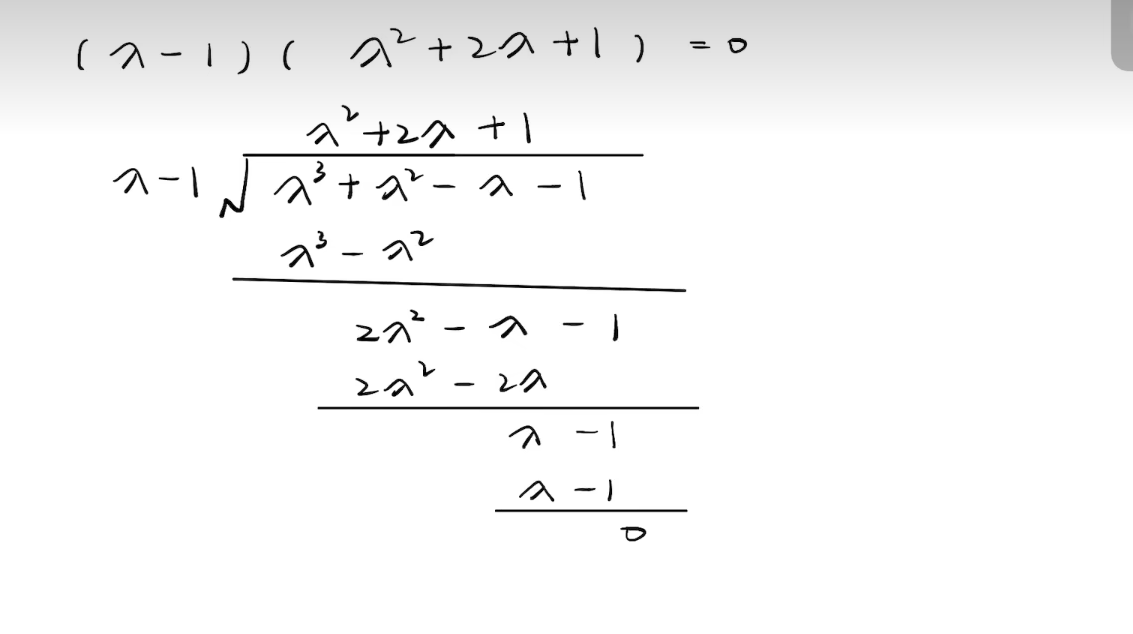 (λ-1)(λ²+2λ+1)=0
λ²+2λ+1
λ-1 √ λ³+λ²-λ-1
λ³-λ²
2λ²-λ-1
2λ²-2λ
λ-1
λ-1
0